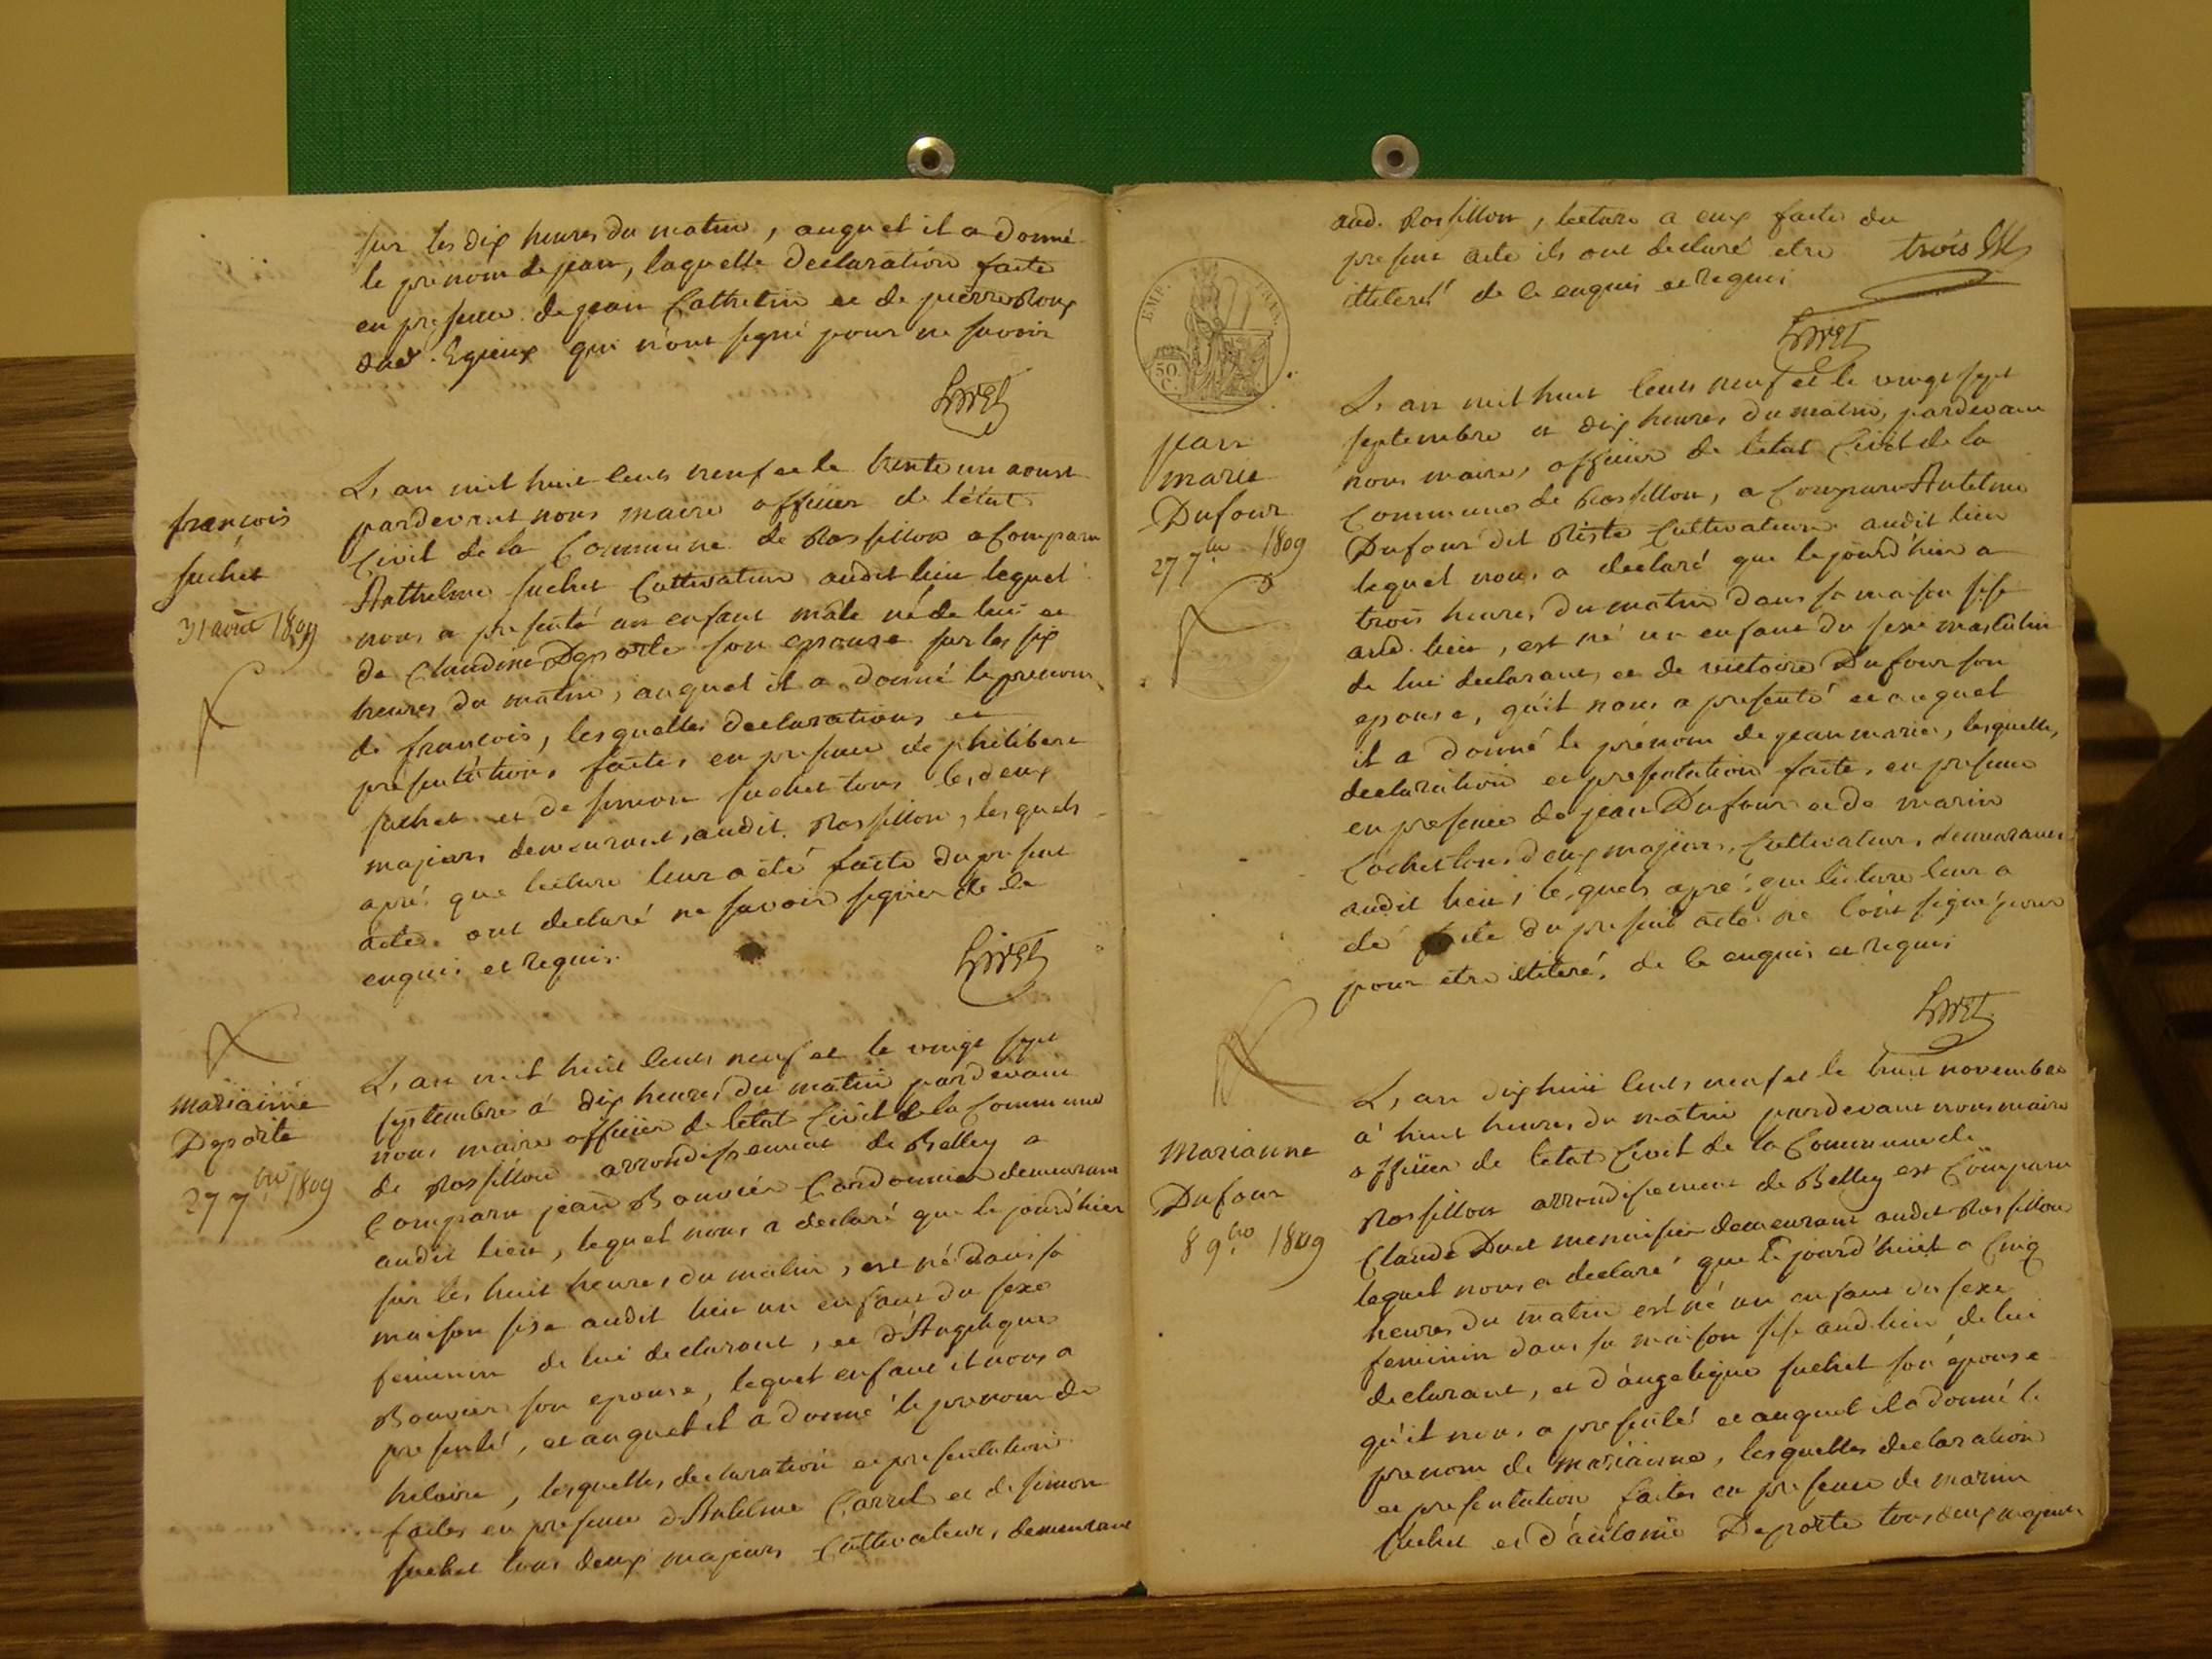 sur les dix heures du matin, auquel il a donné
le prénom de jean, laquelle declaration faite
en presence de jean Cathelin et de pierre Roux
dud. Egieux qui n'ont signé pour ne savoir
Livet
françois
suchet
31 août 1809
L'an mil huit cents neuf et le trente un aoust
pardevant nous maire officier de l'état
Civil de la Commune de Rossillon a Comparu
Anthelme suchet Cultivateur audit lieu lequel
nous a presenté un enfant mâle né de lui et
de Claudine Deporte son epouse sur les six
heures du matin, auquel il a donné le prenom
de françois, lesquelles declarations et
présentations faites en presence de philibert
suchet et de simon suchet tous les deux
majeurs demeurant audit Rossillon, lesquels
après que lecture leur a été faite du present
acte ont declaré ne savoir signer de ce
enquis et requis.
Livet
marianne
Deporte
27 7bre 1809
L'an mil huit cents neuf et le vingt sept
septembre à dix heures du matin pardevant
nous maire officier de l'état Civil de la Commune
de Rossillon arrondissement de Belley a
Comparu jean Bouvier Cordonnier demeurant
audit lieu, lequel nous a declaré que le jourd'hier
sur les huit heures du matin, est né dans sa
maison sise audit lieu un enfant du sexe
feminin de lui declarant, et d'Angelique
Bouvier son epouse, lequel enfant il nous a
presenté, et auquel il a donné le prenom de
hilaire, lesquelles declaration et presentation
faites en presence d'Antelme Carrel et de simon
suchet tous deux majeurs Cultivateurs, demeurant
aud. Rossillon, lecture a eux faite du
present acte ils ont declaré etre
illiteré de ce enquis et requis
trois
Livet
EMP. FRAN.
50 C.
jean
marie
Dufour
27 7bre 1809
L'an mil huit cents neuf et le vingt sept
septembre a dix heures du matin, pardevant
nous maire, officier de l'état Civil de la
Commune de Rossillon, a Comparu Antelme
Dufour dit Cultivateur audit lieu
lequel nous a declaré que le jourd'hier a
trois heures du matin dans sa maison sise
aud. lieu, est né un enfant du sexe masculin
de lui declarant, et de victoire Dufour son
epouse, qu'il nous a presenté et auquel
il a donné le prénom de jean marie, lesquelles
declaration et presentation faite, en presence
en presence de jean Dufour et de marin
Cochet tous deux majeurs, Cultivateurs, demeurants
audit lieu, lesquels après que lecture leur a
été faite du present acte ne l'ont signé pour
pour etre illiteré, de ce enquis et requis
Livet
Marianne
Dufour
8 9bre 1809
L'an dix huit cents neuf et le huit novembre
à huit heures du matin pardevant nous maire
officier de l'etat Civil de la Commune de
Rossillon arrondissement de Belley est Comparu
Claude Duet menuisier demeurant audit Rossillon
lequel nous a declaré que le jourd'huit a Cinq
heures du matin est né un enfant du sexe
feminin dans sa maison sise aud. lieu de lui
declarant, et d'angelique suchet son epouse
qu'il nous a presenté et auquel il a donné le
prenom de marianne, lesquelles declaration
et presentation faites en presence de marin
suchet et d'antoine Deporte tous deux majeurs